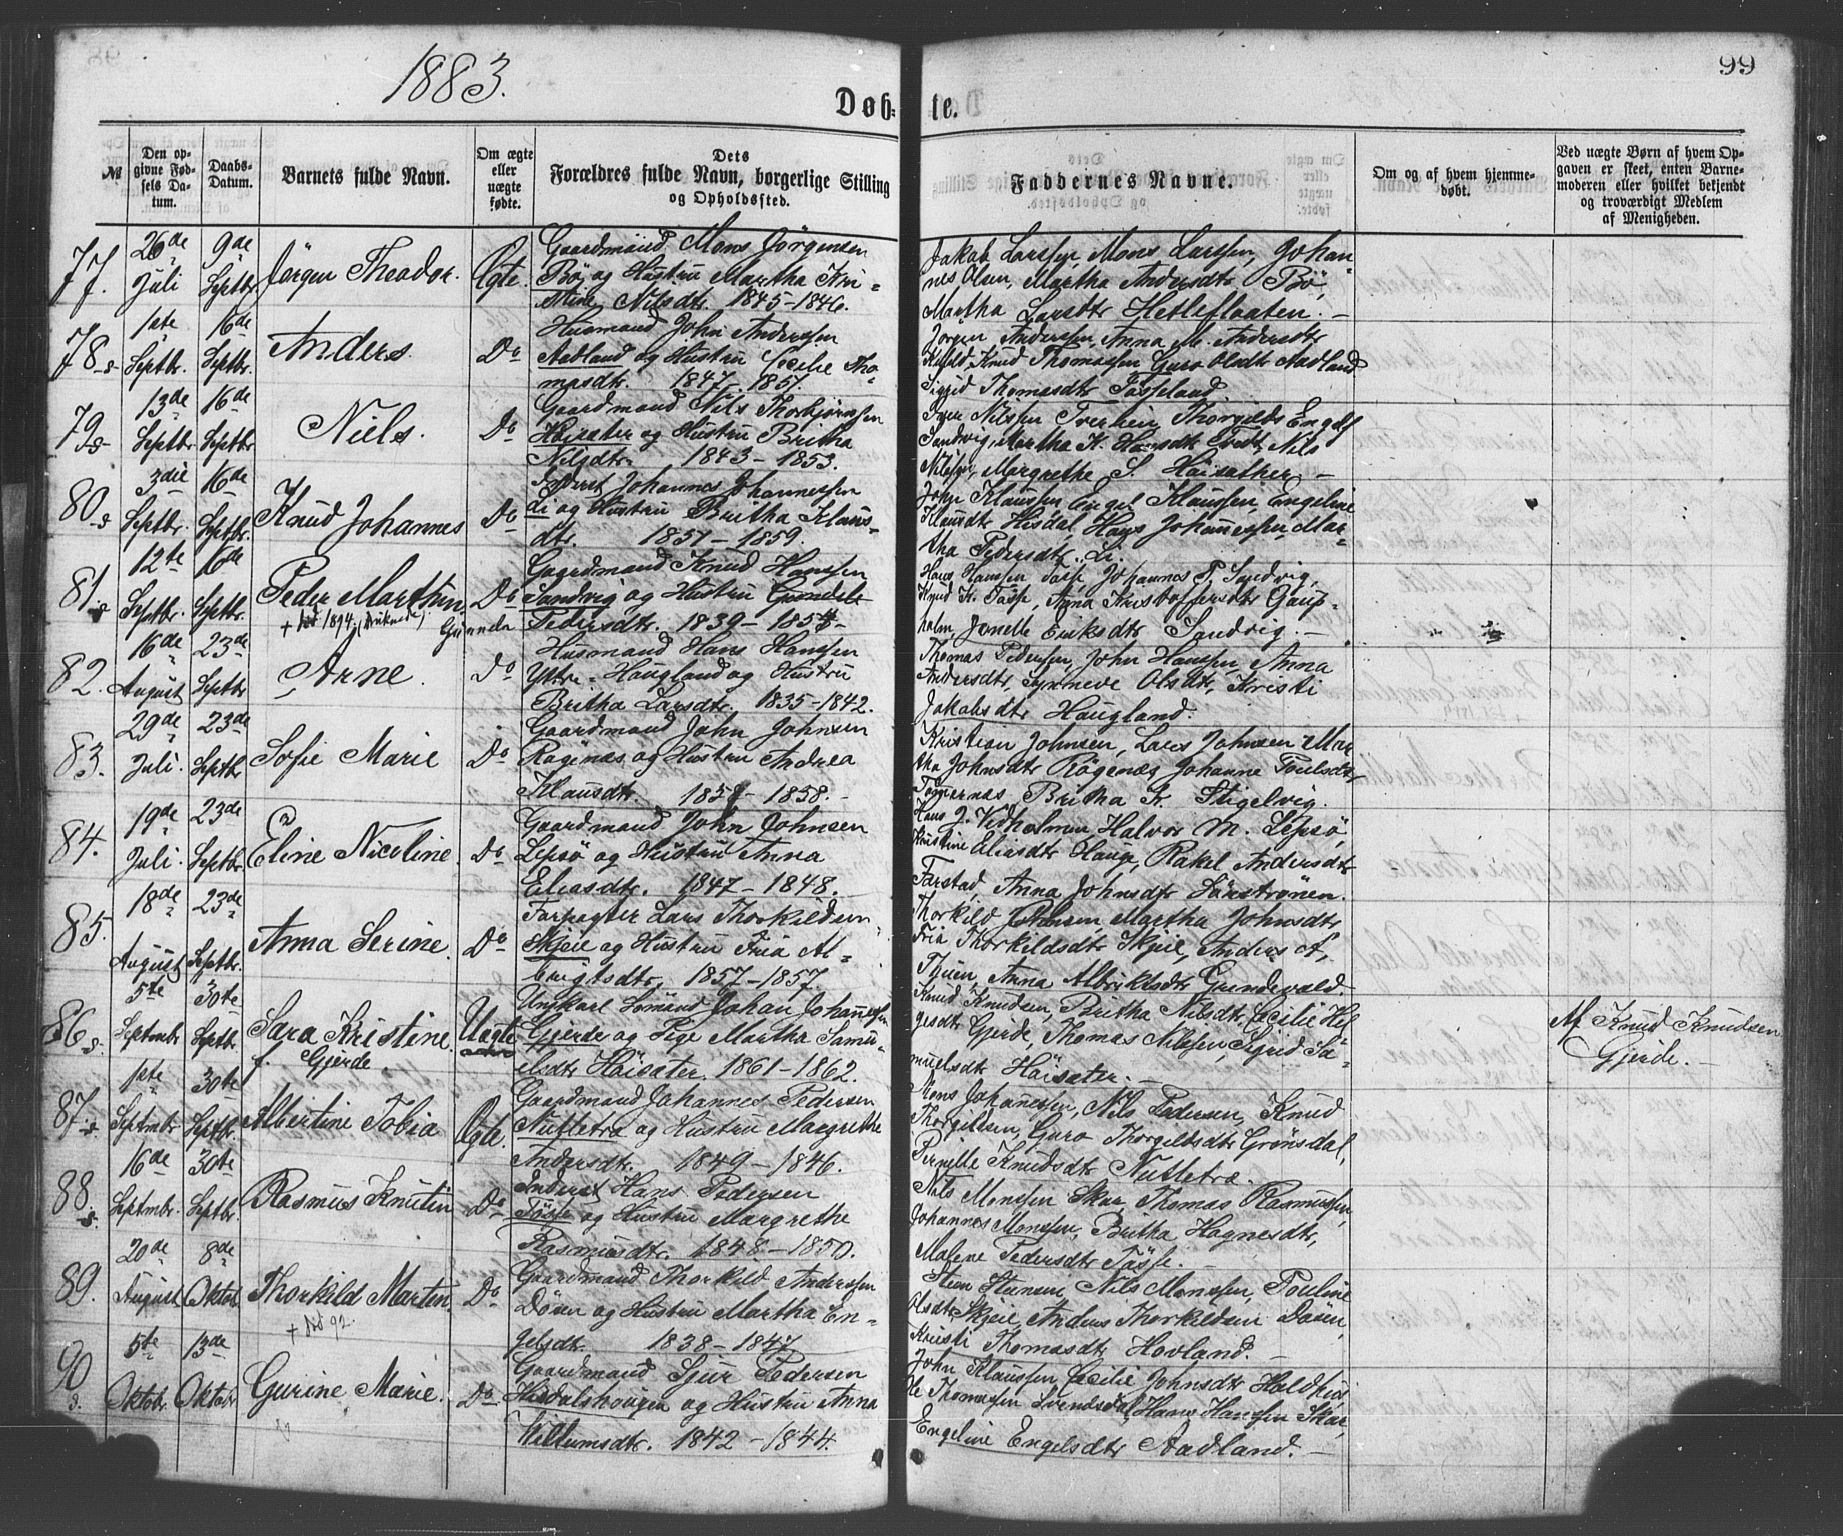 1883.
99
Døb-
te.
№
Den op-
givne Fød-
sels Da-
tum.
Daabs-
Datum.
Barnets fulde Navn.
Om ægte
eller
uægte
fødte.
Dets
Forældres fulde Navn, borgerlige Stilling
og Opholdssted.
Faddernes Navne.
Om og af hvem hjemme-
døbt.
Ved uægte Børn af hvem Op-
gaven er skeet, enten Barne-
moderen eller hvilket bekjendt
og troværdigt Medlem
af Menigheden.
77.
26de Juli
9de Septbr
Jørgen Theodor.
Ægte.
Gaardmand Mons Jørgensen
Bø og Hustru Martha Kri-
stine Nilsdtr. 1845-1846.
Jakob Larssen, Mons Larssen, Johan-
nes Olsen, Martha Andersdtr Bø,
Martha Larsdtr Hetlefloaten. -
78.
1ste Septbr.
16de Septbr.
Anders.
Do
Husmand John Anderssen
Aadland og Hustru Cecilie Tho-
masdtr. 1847-1851.
Jørgen Anderssen, Anna M. Andersdtr
Knud Thomassen, Guro Olsdtr Aadland
Sigrid Thomasdtr Tøsseland.
79.
13de Septbr
16de Septbr.
Niels.
Do
Gaardmand Nils Thorbjørnsen
Høisæter og Hustru Britha
Nilsdtr. 1843-1853.
Iver Nilssen Tverheim, Thorgils Engels
Sandvig, Martha K. Hansdtr Tvedt, Nils
Nilssen, Margrethe S. Høisæther. -
80.
3die Septbr.
16de Septbr.
Knud Johannes
Do
Inderst Johannes Johannessen
Li og Hustru Britha Klaus-
dtr. 1851-1859.
John Klaussen, Engel Klaussen, Engeline
Klausdtr Hisdal, Hans Johannessen, Mar-
tha Pedersdtr. Li.
81.
12te Septbr.
16de Septbr.
Peder Marthin
+ död 1894. (druknede)
Do
Gunda
Gaardmand Knud Hanssen
Sandvig og Hustru
Pedersdtr. 1839-
Hans Hanssen Tøsse, Johannes P. Sandvig,
Knud K. Tøsse, Anna Kristoffersdtr Gaup-
holm, Jonelle Eriksdtr Sandvig. -
82.
16de August
23de Septbr
Arne.
Do
Husmand Hans Hanssen
Yttre-Haugland og Hustru
Britha Larsdtr. 1835-1842.
Thomas Pedersen, John Hanssen, Anna
Andersdtr, Synneve Olsdtr, Kristi
Jakobsdtr Haugland.
83.
29de Juli.
23de Septbr
Sofie Marie
Do
Gaardmand John Johnsen
Røgenæs og Hustru Andrea
Klausdtr. 1858-1858.-
Kristian Johnsen, Lars Johnsen, Mar-
tha Johnsdtr Røgenæs, Johanne Poulsdtr
Tømernæs Britha K. Stigelvig.
84.
19de Juli.
23de Septbr
Eline Nicoline.
Do
Gaardmand John Johnsen
Lepsø og Hustru Anna
Eliasdtr. 1847-1848.
Hans J. Vedholmen, Halvor M. Lepsø,
Kristine Eliasdtr Hauge, Rakel Andersdtr
Farstad, Anna Johnsdtr Sørstrønen.
85.
18de August
23de Septbr.
Anna Serine.
Do
Forpagter Lars Thorkildsen
Skjeie og Hustru Fria Al-
brigtsdtr. 1857-1857.
Thorkild Johnsen, Martha Johnsdtr
Fria Thorkildsdtr Skjeie, Anders A.
Thuen, Anna Albriktsdtr Grindevald.
86.
5te Septmbr
30te Septbr.
Sara Kristine.
f. Gjerde
Uægte
Ungkarl Sømand Johan Johannessen
Gjerde og Pige Martha Samu-
elsdtr Høisæter. 1861-1862.
Knud Knudsen, Britha Nilsdtr, Cecilie Hel-
gesdtr Gjerde, Thomas Nilssen, Sigrid Sa-
muelsdtr Høisæter. -
Af Knud Knudsen
Gjerde. -
87.
1ste Septmbr
30te Septbr.
Albertine Tobia
Ægte.
Gaardmand Johannes Pedersen
Nutletræ og Hustru Margrethe
Andersdtr. 1849-1846.
Mons Johannessen, Nils Pedersen, Knud
Thorgilssen, Guro Thorgilsdtr Grønsdal,
Pernille Knudsdtr Nutletræ.
88.
16de Septmbr.
30te Septbr.
Rasmus Knutin
Do
Inderst Hans Pedersen
Tøsse og Hustru Margrethe
Rasmusdtr. 1848-1850.
Nils Monssen Skar, Thomas Rasmussen,
Johannes Monssen, Britha Hagnesdtr,
Malene Pedersdtr Tøsse. -
89.
20de August
8de Oktobr
Thorkild Martin.
+ död 92.
Do
Gaardmand Thorkild Anderssen
Døsen og Hustru Martha En-
gelsdtr. 1838-1847
Steen Steensen, Nils Monssen, Pouline
Olsdtr Skjeie, Anders Thorkildsen Døsen,
Kristi Thomasdtr Hovland. -
90.
5te Oktobr.
13de Oktobr
Gurine Marie.
Do
Gaardmand Sjur Pedersen
Hisdalshougen og Hustru Anna
Willumsdtr. 1842-1844.
John Klaussen, Cecilie Johnsdtr Haldhus
Ole Thomassen Svendsdal, Hans Hanssen Skar,
Engeline Engelsdtr Aadland. -